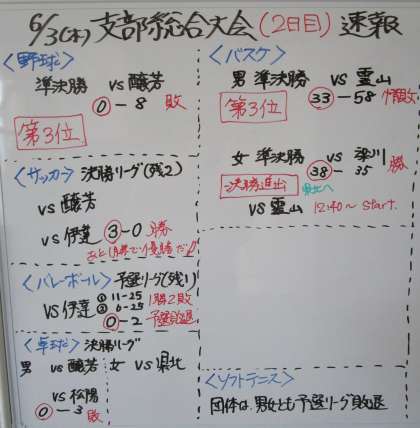 6/3(木)支部総合大会(2日目)速報
〈野球〉
準決勝 vs醸芳
0-8 敗
第3位
〈サッカー〉決勝リーグ(残2)
vs醸芳
vs伊達 3-0 勝
あと1勝で優勝だ!!
〈バレーボール〉予選リーグ(残り)
vs伊達 ① 11-25 1勝2敗
② 6-25
0-2 予選敗退
〈卓球〉決勝リーグ
男 vs醸芳 女 vs県北
vs松陽
0-3 敗
〈バスケ〉
男 準決勝 vs霊山
第3位 33-58 惜敗
女 準決勝 vs 梁川
38-35 勝
決勝進出 県北へ
vs霊山 12:40~ start.
〈ソフトテニス〉
団体は、男女とも予選リーグ敗退